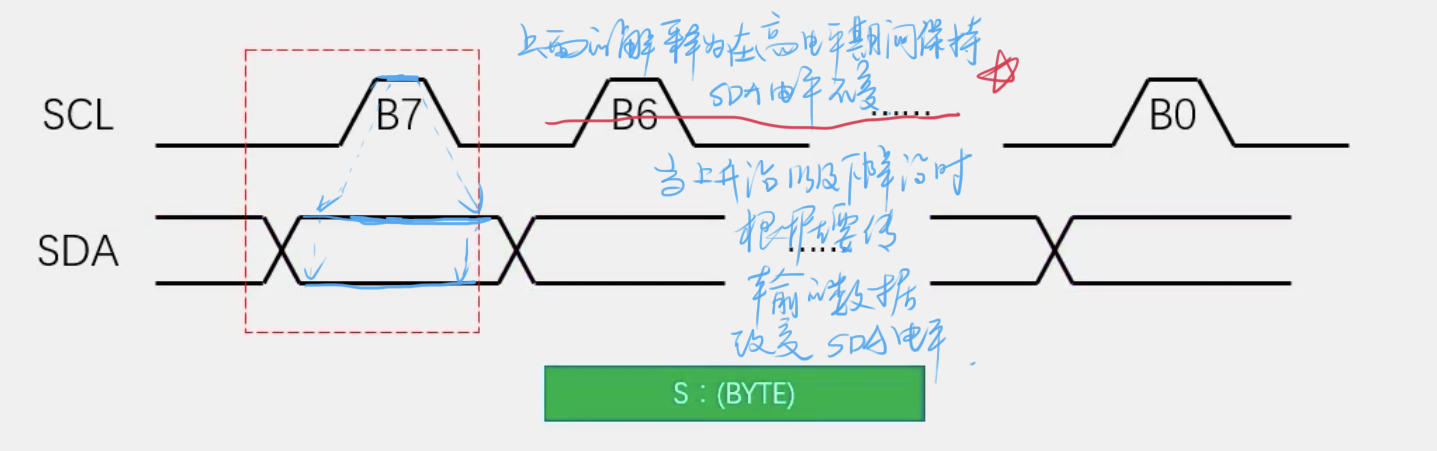 上面的解释为在高电平期间保持
SDA电平不变
SCL
B7
B6
......
B0
当上升沿以及下降沿时
根据要传
SDA
......
输的数据
改变SDA电平.
S：(BYTE)